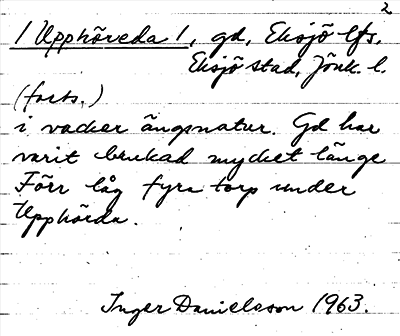 2
/ Upphöreda /, gd, Eksjö lfs.
Eksjö stad, Jönk. l.
(forts.)
i vacker ängsnatur. Gd har
varit brukad mycket länge
Förr låg fyra torp under
Upphörda.
Inger Danielsson 1963.